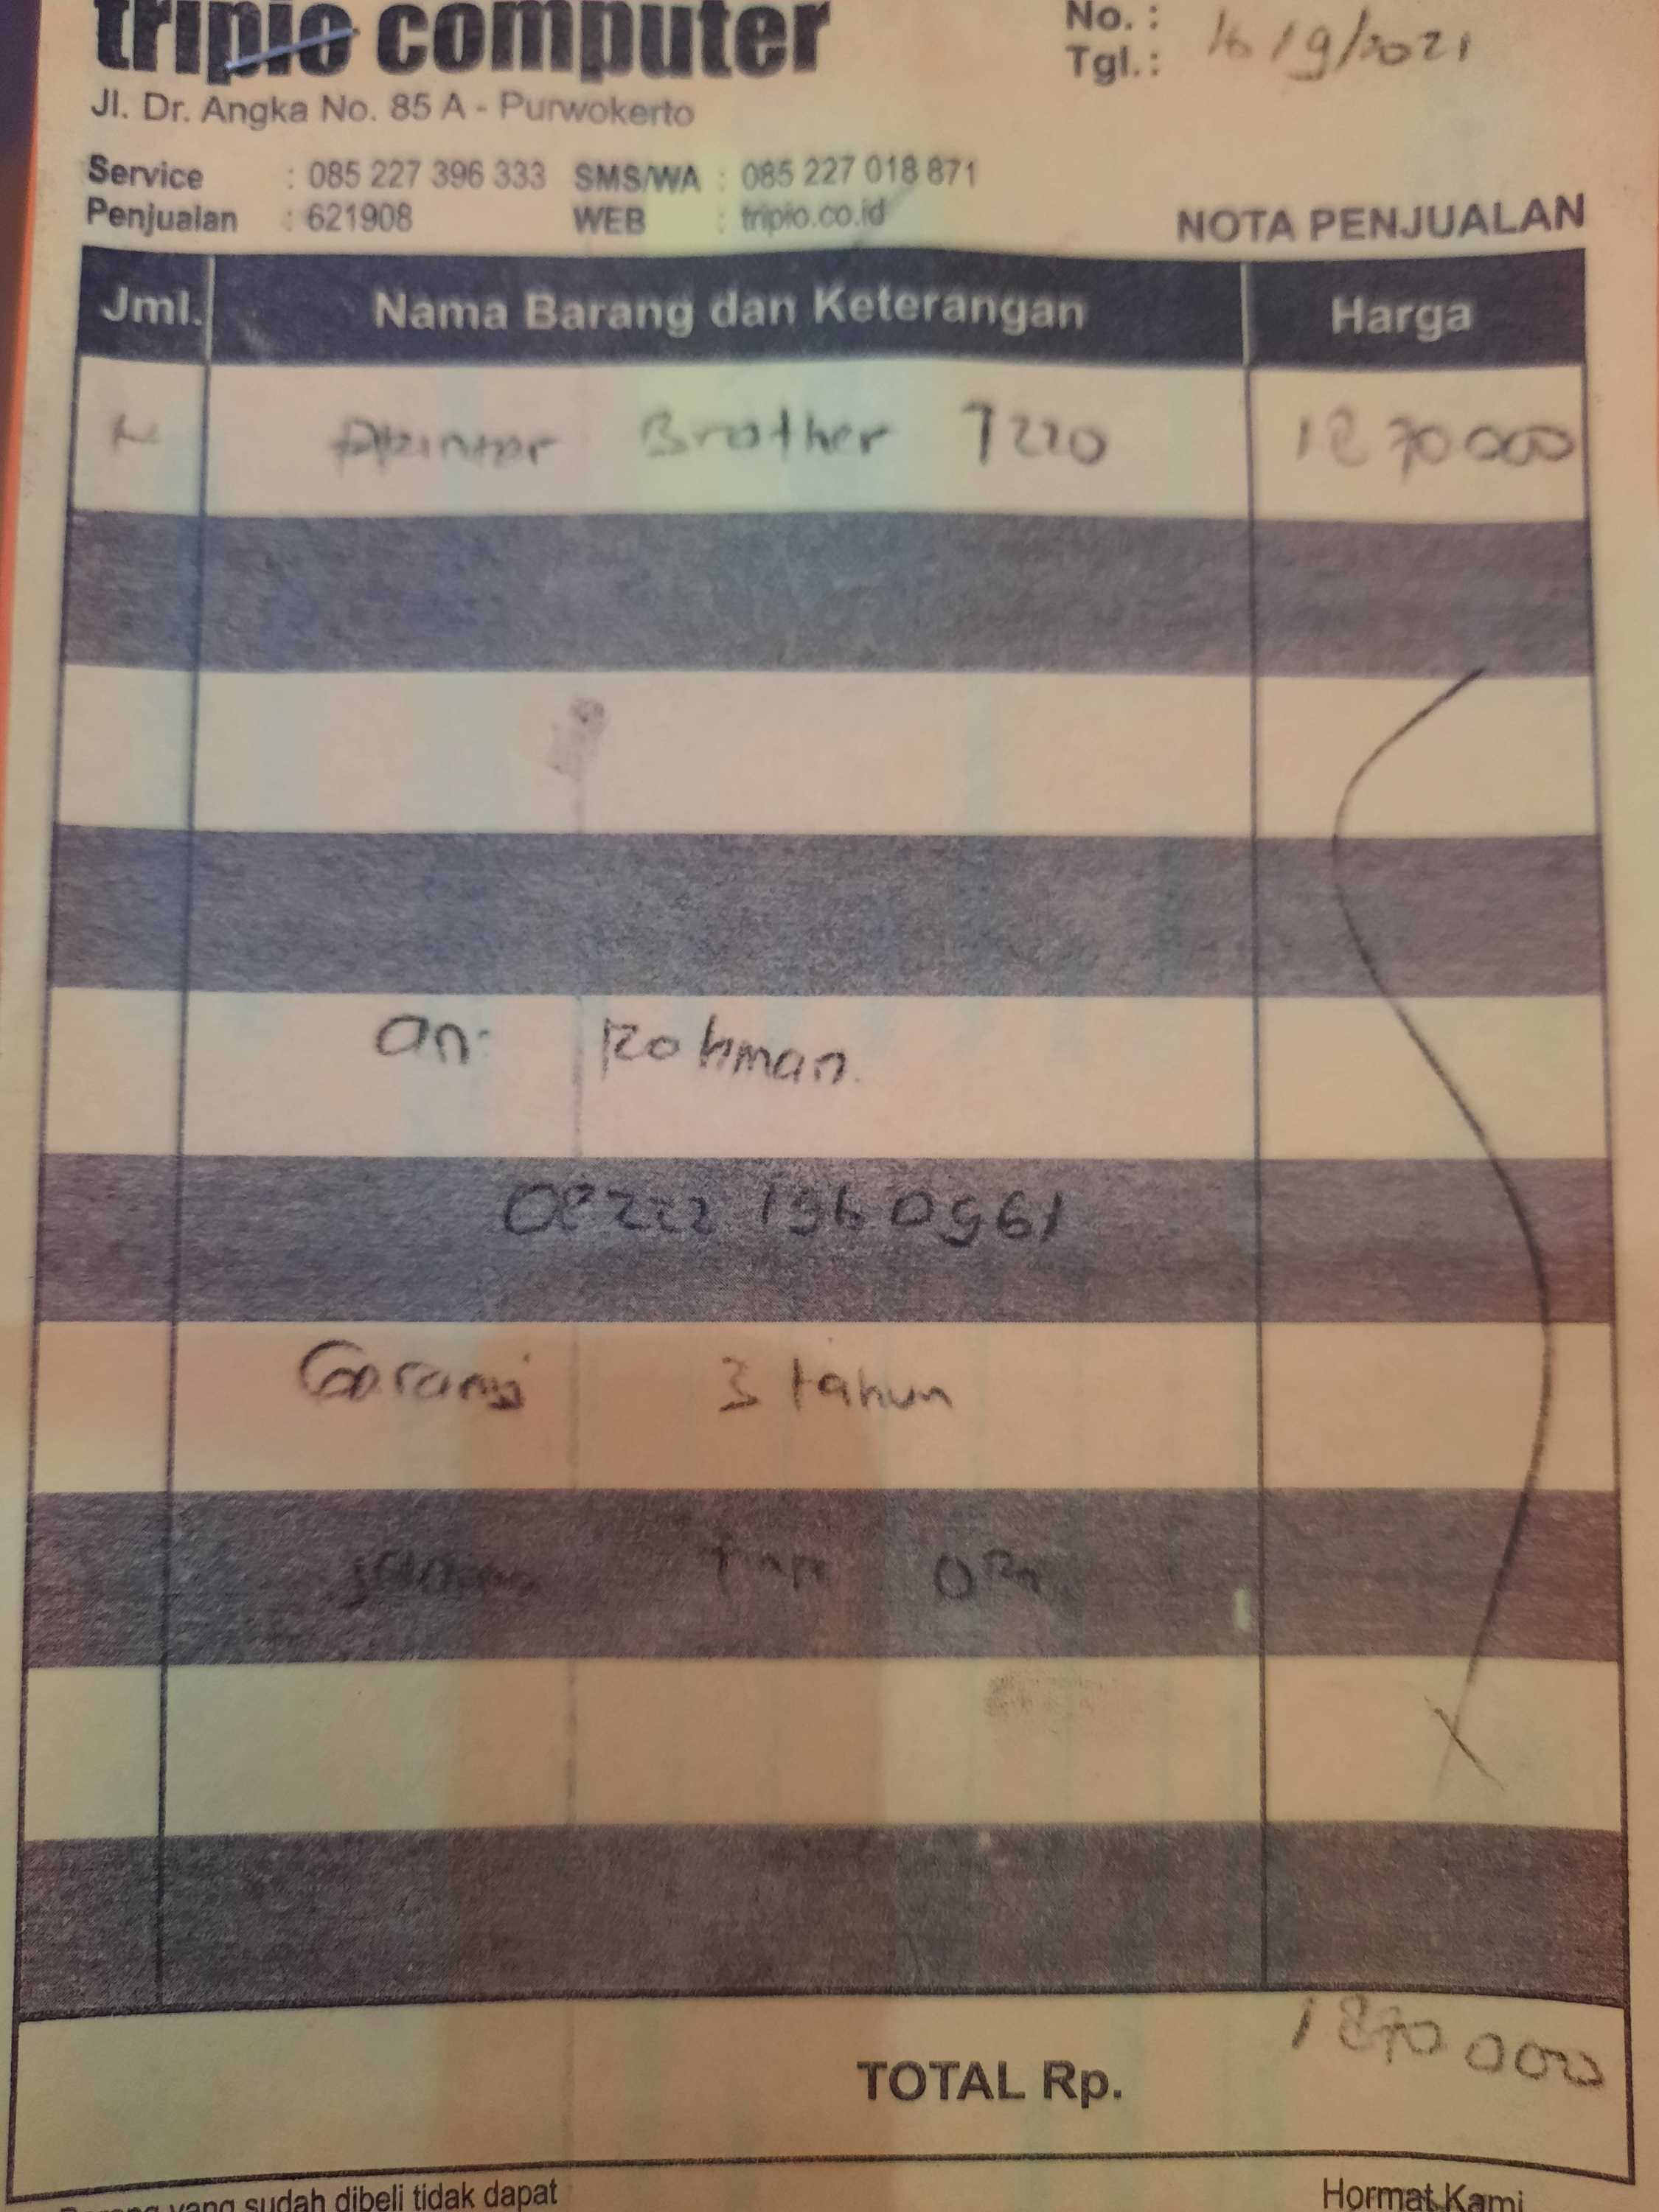 tripio computer
No. :
Tgl. : 16/9/2021
Jl. Dr. Angka No. 85 A - Purwokerto
Service : 085 227 396 333 SMS/WA : 085 227 018 871
Penjualan : 621908 WEB : tripio.co.id
NOTA PENJUALAN
Jml. Nama Barang dan Keterangan Harga
Printer Brother T220 1870000
an. Rohman.
Garansi 3 tahun
1870 000
TOTAL Rp.
yang sudah dibeli tidak dapat
Hormat Kami